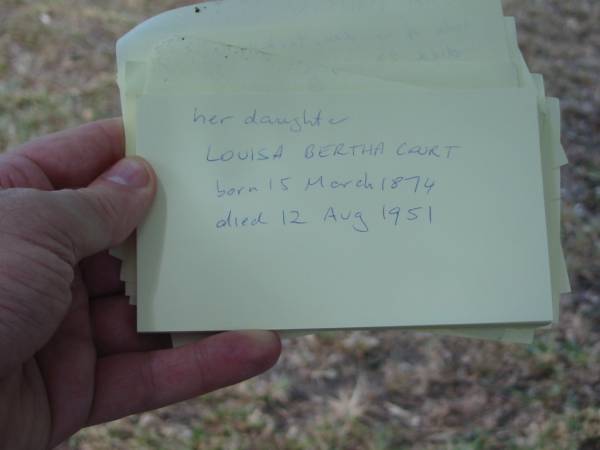 her daughter
LOUISA BERTHA COURT
born 15 March 1874
died 12 Aug 1951